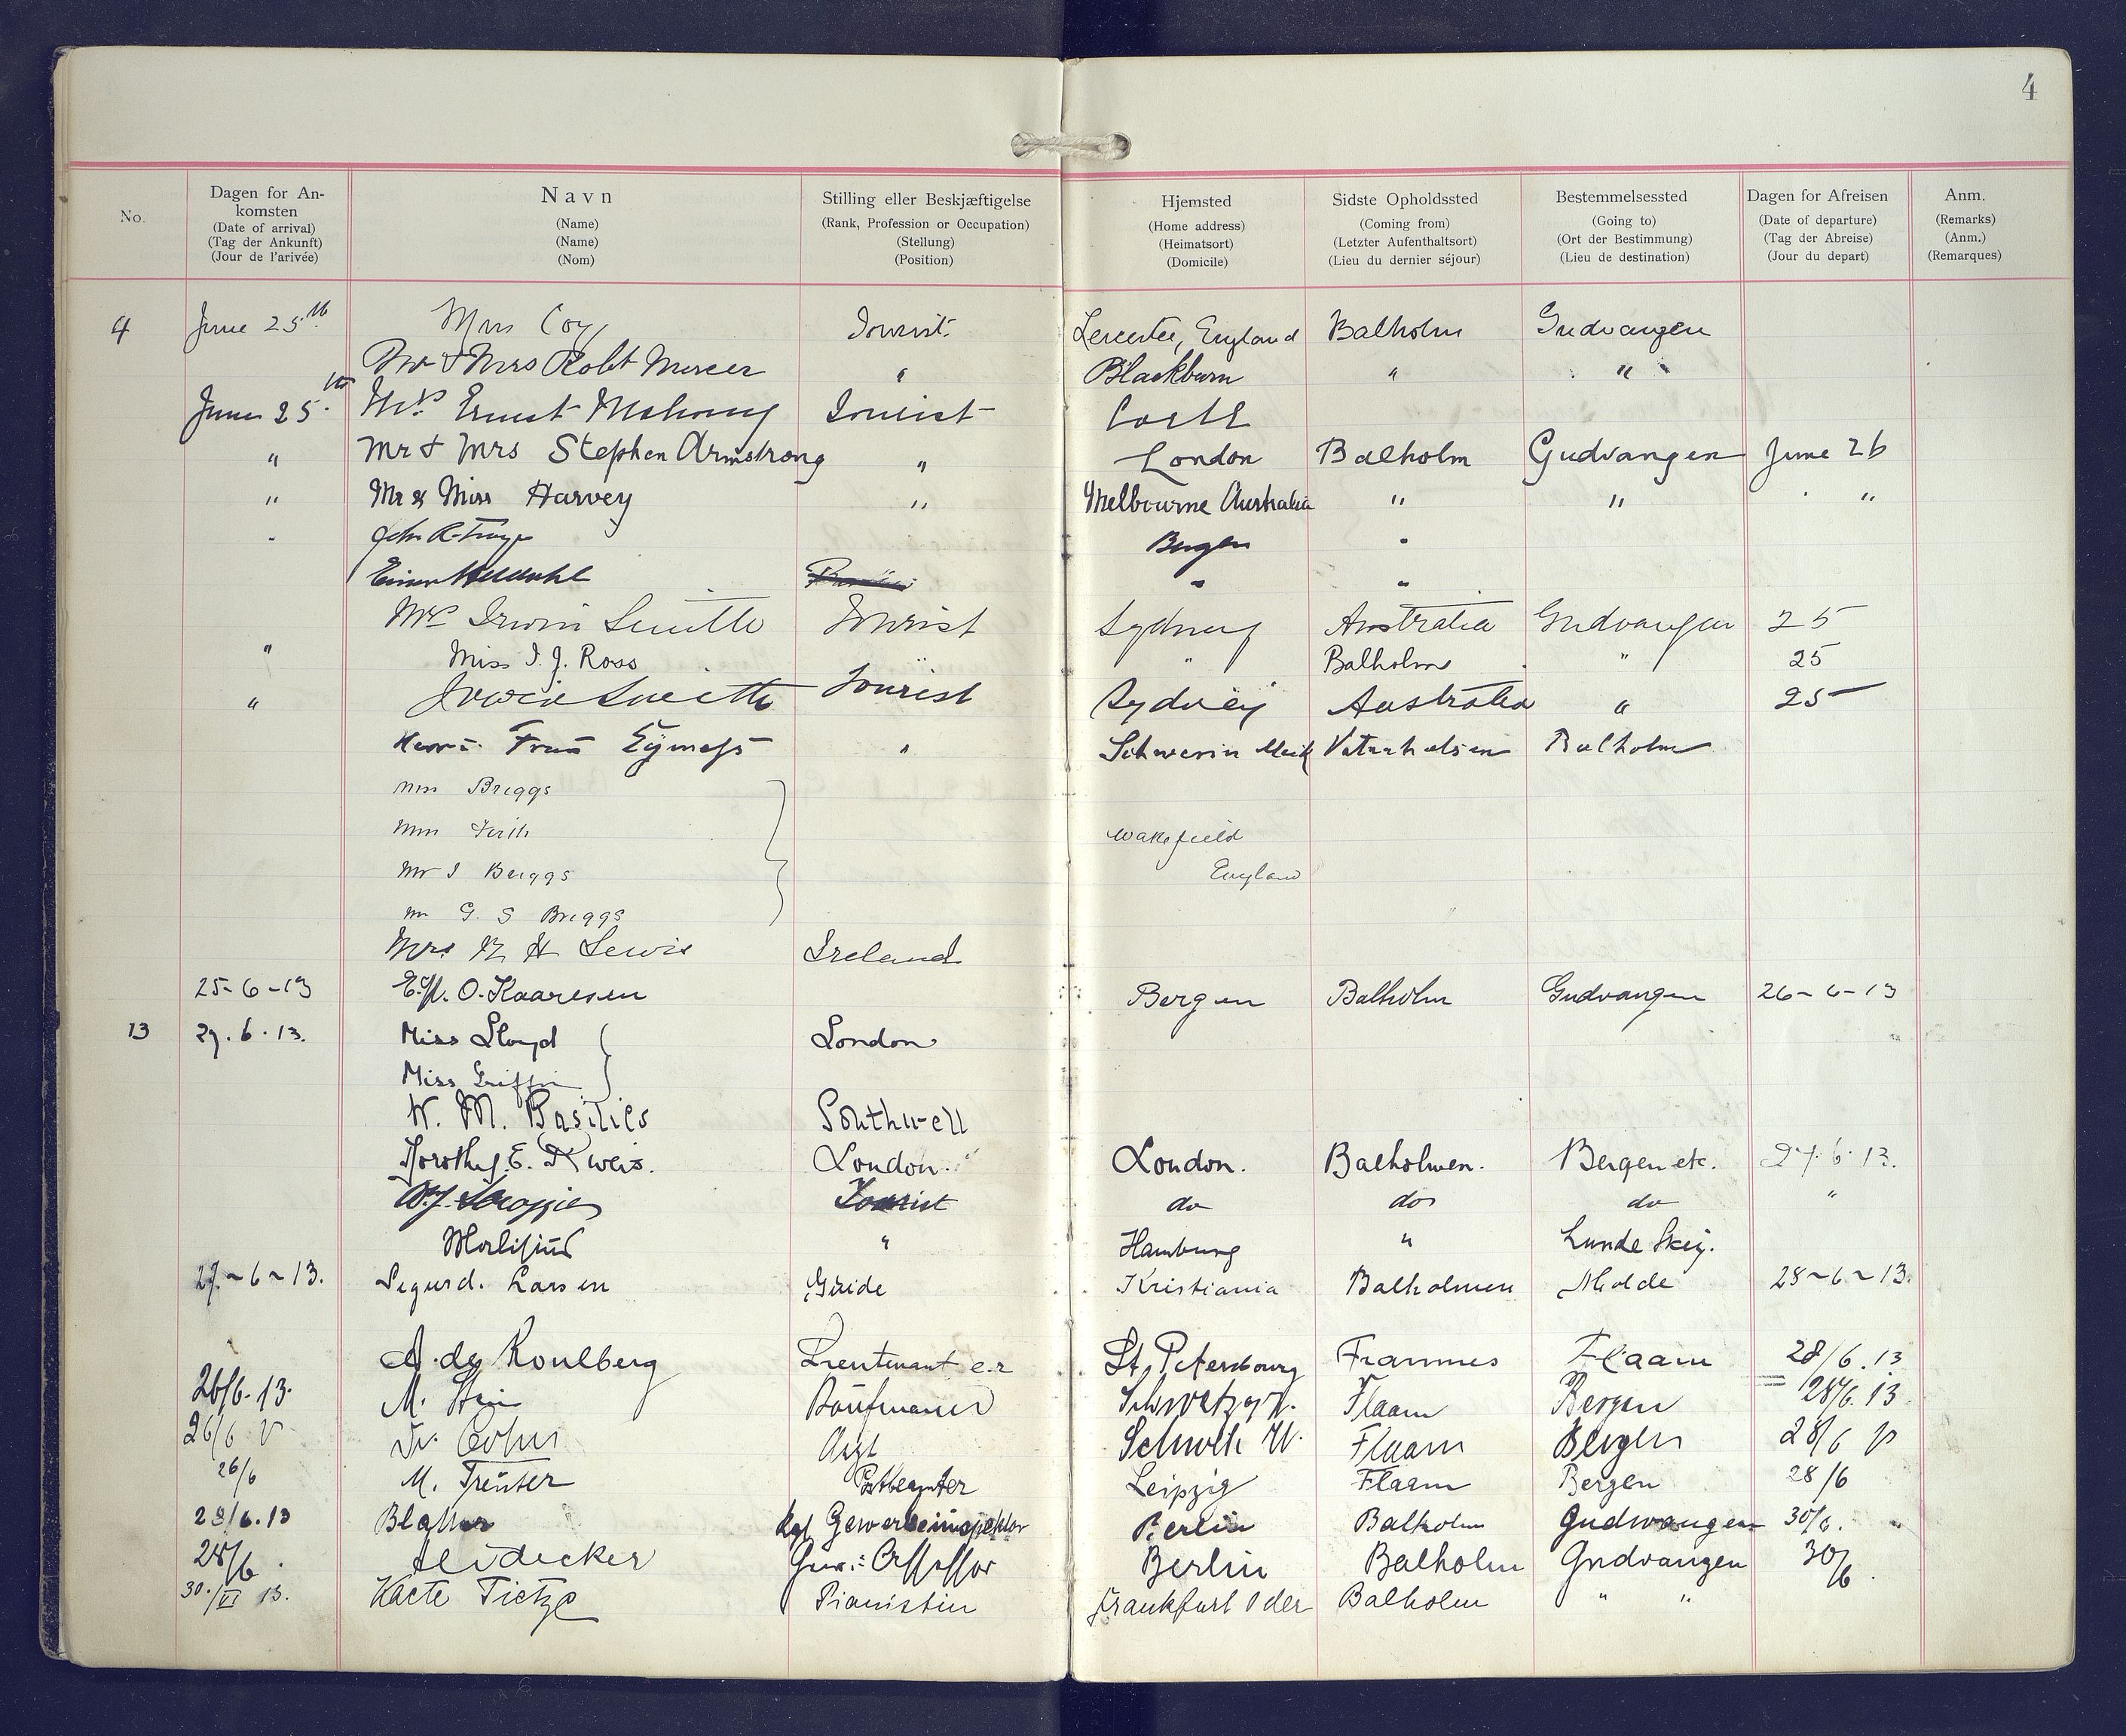 4
No.
Dagen for An-
komsten
(Date of arrival)
(Tag der Ankunft)
(Jour de l'arivée)
Navn
(Name)
(Name)
(Nom)
Stilling eller Beskjæftigelse
(Rank, Profession or Occupation)
(Stellung)
(Position)
Hjemsted
(Home address)
(Heimatsort)
(Domicile)
Sidste Opholdssted
(Coming from)
(Letzter Aufenthaltsort)
(Lieu du dernier séjour)
Bestemmelsessted
(Going to)
(Ort der Bestimmung)
(Lieu de destination)
Dagen for Afreisen
(Date of departure)
(Tag der Abreise)
(Jour du depart)
Anm.
(Remarks)
(Anm.)
(Remarques)
4 June 25th Coy Tourist Leicester, England Balholm Gudvangen
Mr & Mrs Robt Mercer " Blackburn " "
June 25th Ernest Tourist
" Mr & Mrs Stephen Armstrong " London Balholm Gudvangen June 26
" Mr & Miss Harvey " Melbourne Australia " " "
Bergen "
" "
Mrs Irwin Smith Tourist Sydney Australia Gudvangen 25
" Miss I. J. Ross " Balholm " 25
" Irwin Smith Tourist Sydney Australia " 25
" Schwerin Balholm
Briggs
Firth Wakefield
Mr J Briggs England
G. S Briggs
Mrs H Lewis Ireland
25-6-13 O. Kaaresen Bergen Balholm Gudvangen 26-6-13
13 27.6.13. Miss Lloyd London
Miss Griffin
W. M. Southwell
Dorothy E. London London. Balholmen. Bergen etc. 27.6.13.
Tourist do do do "
" Hamburg " Lunde Skei.
27-6-13. Sigurd. Larsen Guide Kristiania Balholmen Molde 28-6-13.
A. de Roulberg Lieutenant St. Petersbourg Flaam 28/6.13
26/6.13. M. Kaufmann Flaam Bergen 28/6.13
26/6 Dr. Cohn Arzt Flaam Bergen 28/6
26/6 M. Treuter Postbeamter Leipzig Flaam Bergen 28/6
28/6.13 Kgl Gewerbeinspektor Berlin Balholm Gudwangen 30/6.
28/6. Heidecker Assessor Berlin Balholm Gudvangen 30/6.
30./VI 13. Kaete Tietze Pianistin Frankfurt Oder Balholm " "